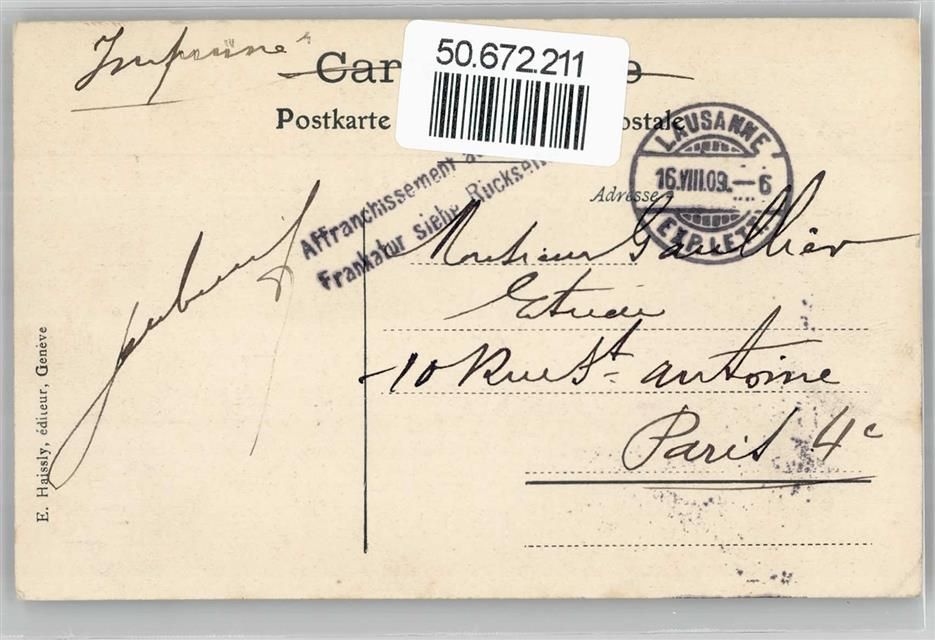 Imprimé
50.672.211
Car e
Postkarte ostale
LAUSANNE
16.VIII.09.–6
EXP.LETT
Affranchissement au
Frankatur siehe Rückseit
Adresse
Monsieur Gaullier
10 Rue St. antoine
Paris 4e
E. Haissly, éditeur, Genève